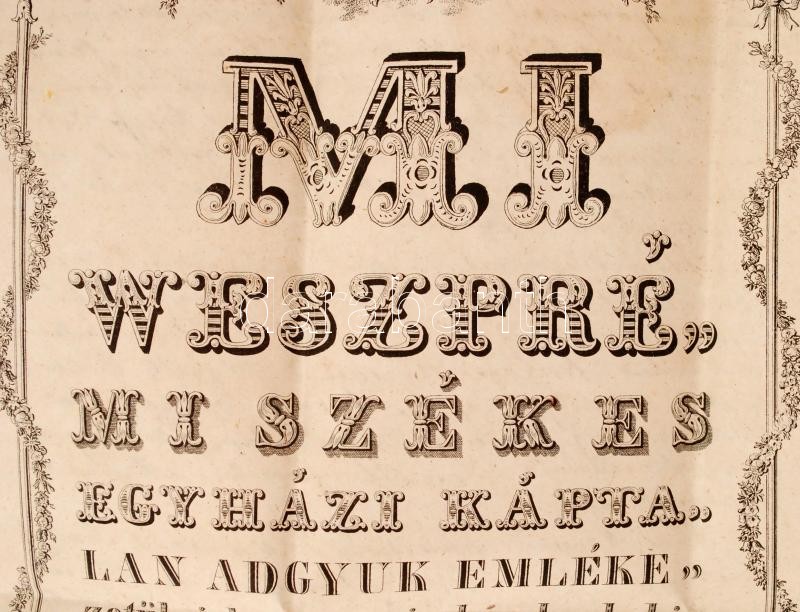 MI
WESZPRÉ„
MI SZÉKES
EGYHÁZI KÁPTA„
LAN ADGYUK EMLÉKE„
darabanth